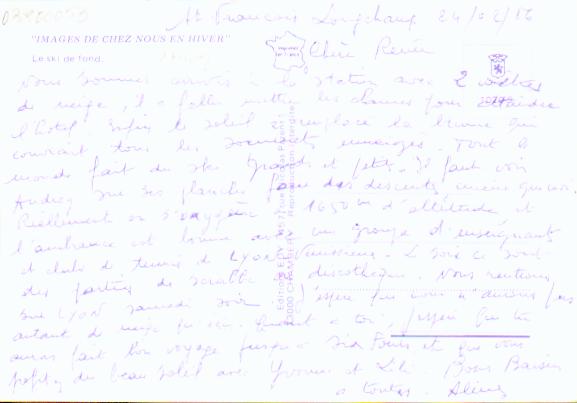 St François Longchamp 24/02/86
"IMAGES DE CHEZ NOUS EN HIVER"
Le ski de fond.
Imprimé en France
Chère Renée
Nous sommes arrivés à la station avec 2 mètres
de neige, il a fallu mettre les chaines pour
l'hôtel. Enfin le soleil a remplacé la brume qui
couvrait tous les sommets enneigés. Tout le
monde fait du ski grands et petits. Il faut voir
Audrey sur ses planches
Réellement on s'oxygène à 1650 m d'altitude et
l'ambiance est bonne avec un groupe d'enseignants
et clubs de tennis de LYON Le soir ce sont
des parties de scrabble discothèque. Nous rentrons
sur LYON samedi soir j'espère que nous n'aurons pas
autant de neige Quant à toi, j'espère que tu
auras fait bon voyage jusqu'à et que vous
profitez du beau soleil avec Yvonne et Lili. Bons Baisers
à toutes.
73000 CHAMBERY Reproduction interdite